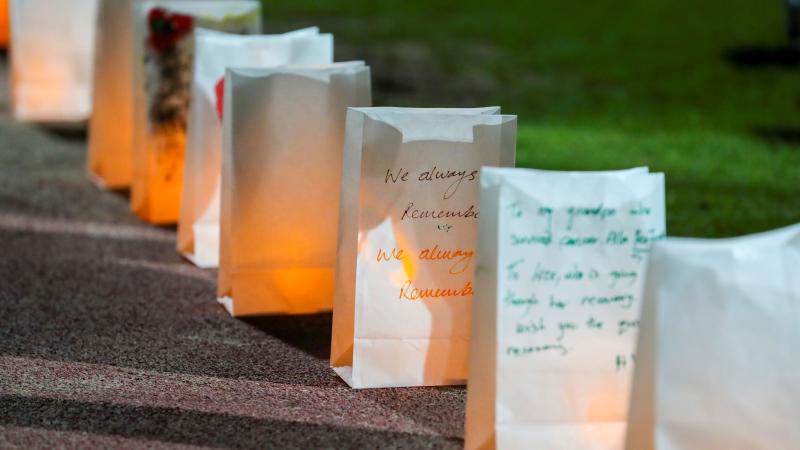 We always
Remembe
We always
Rememb
To my grandpa who
survived cancer.
To
who is going
though her recovery
wish you the
recovery.